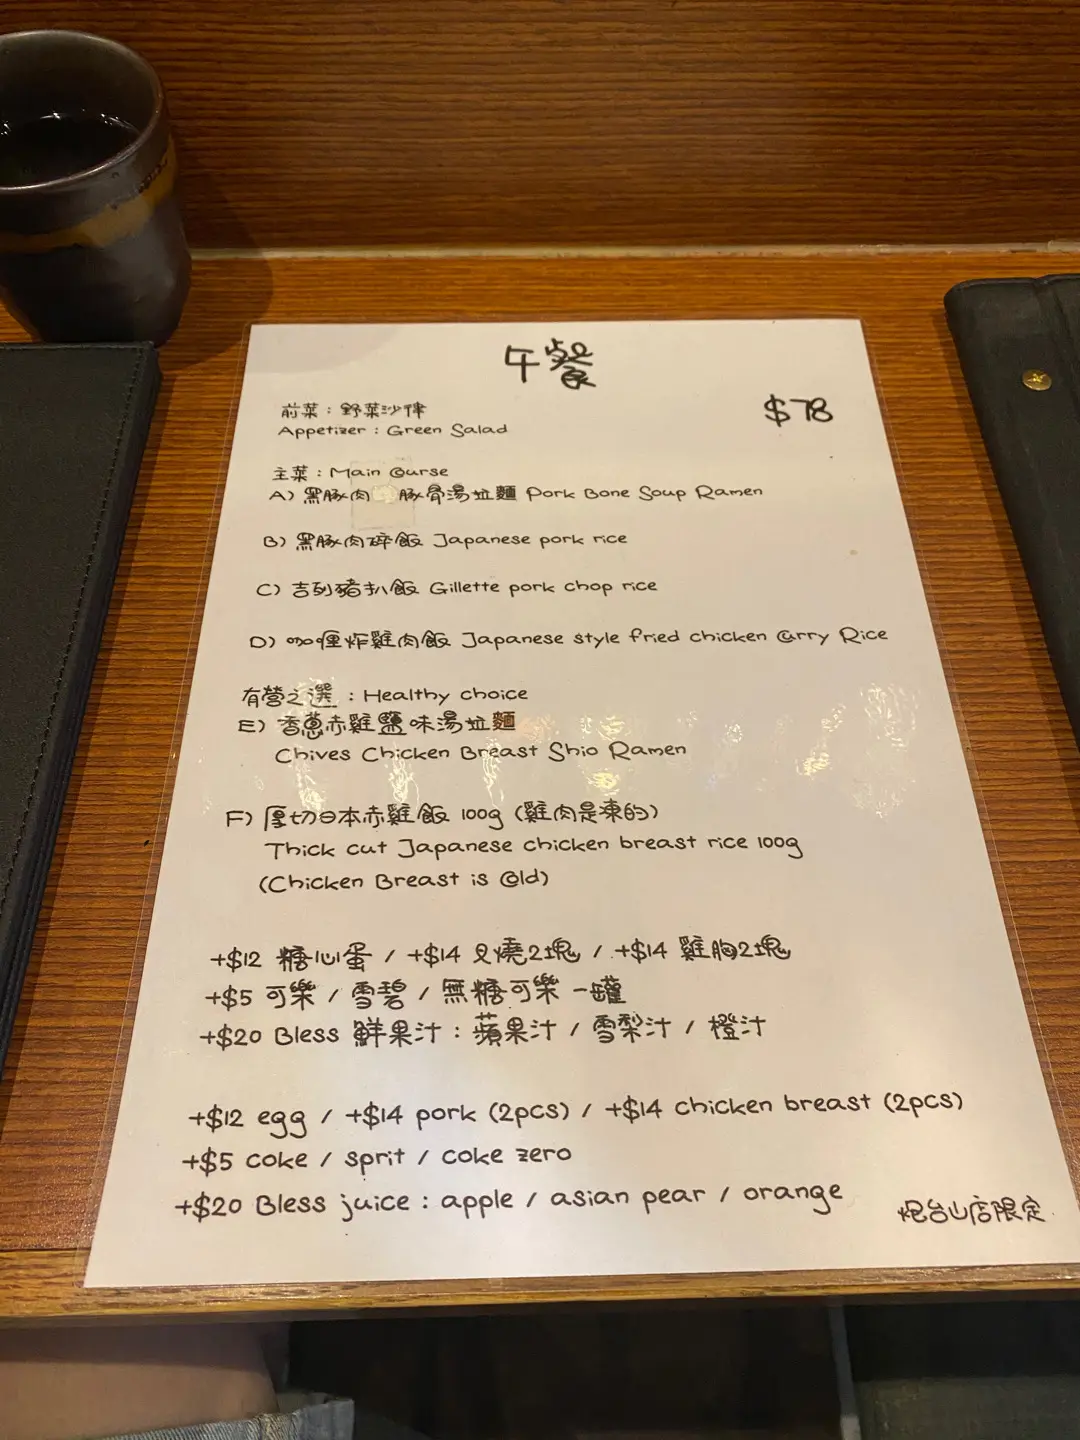 午餐
$78
前菜：野菜沙律
Appetizer : Green Salad
主菜 : Main Course
A) 黑豚肉 豚骨湯拉麵 Pork Bone Soup Ramen
B) 黑豚肉碎飯 Japanese pork rice
C) 吉列豬扒飯 Gillette pork chop rice
D) 咖喱炸雞肉飯 Japanese style fried chicken Curry Rice
有營之選 : Healthy choice
E) 香蔥赤雞鹽味湯拉麵
Chives Chicken Breast Shio Ramen
F) 厚切日本赤雞飯 100g (雞肉是凍的)
Thick cut Japanese chicken breast rice 100g
(Chicken Breast is Cold)
+$12 糖心蛋 / +$14 叉燒2塊 / +$14 雞胸2塊
+$5 可樂 / 雪碧 / 無糖可樂 一罐
+$20 Bless 鮮果汁 : 蘋果汁 / 雪梨汁 / 橙汁
+$12 egg / +$14 pork (2pcs) / +$14 chicken breast (2pcs)
+$5 coke / sprit / coke zero
+$20 Bless juice : apple / asian pear / orange
炮台山店限定